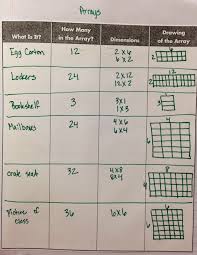 Arrays
What Is It? How Many in the Array? Dimensions Drawing of the Array
Egg Carton 12 2x6 6
6x2 2
Lockers 24 2x12 12
12x2 2
Bookshelf 3 3x1 1
1x3 3
Mailboxes 24 4x6 4
6x4 6
crate seat 32 4x8 8
8x4 4
Picture of class 36 6x6 6
6